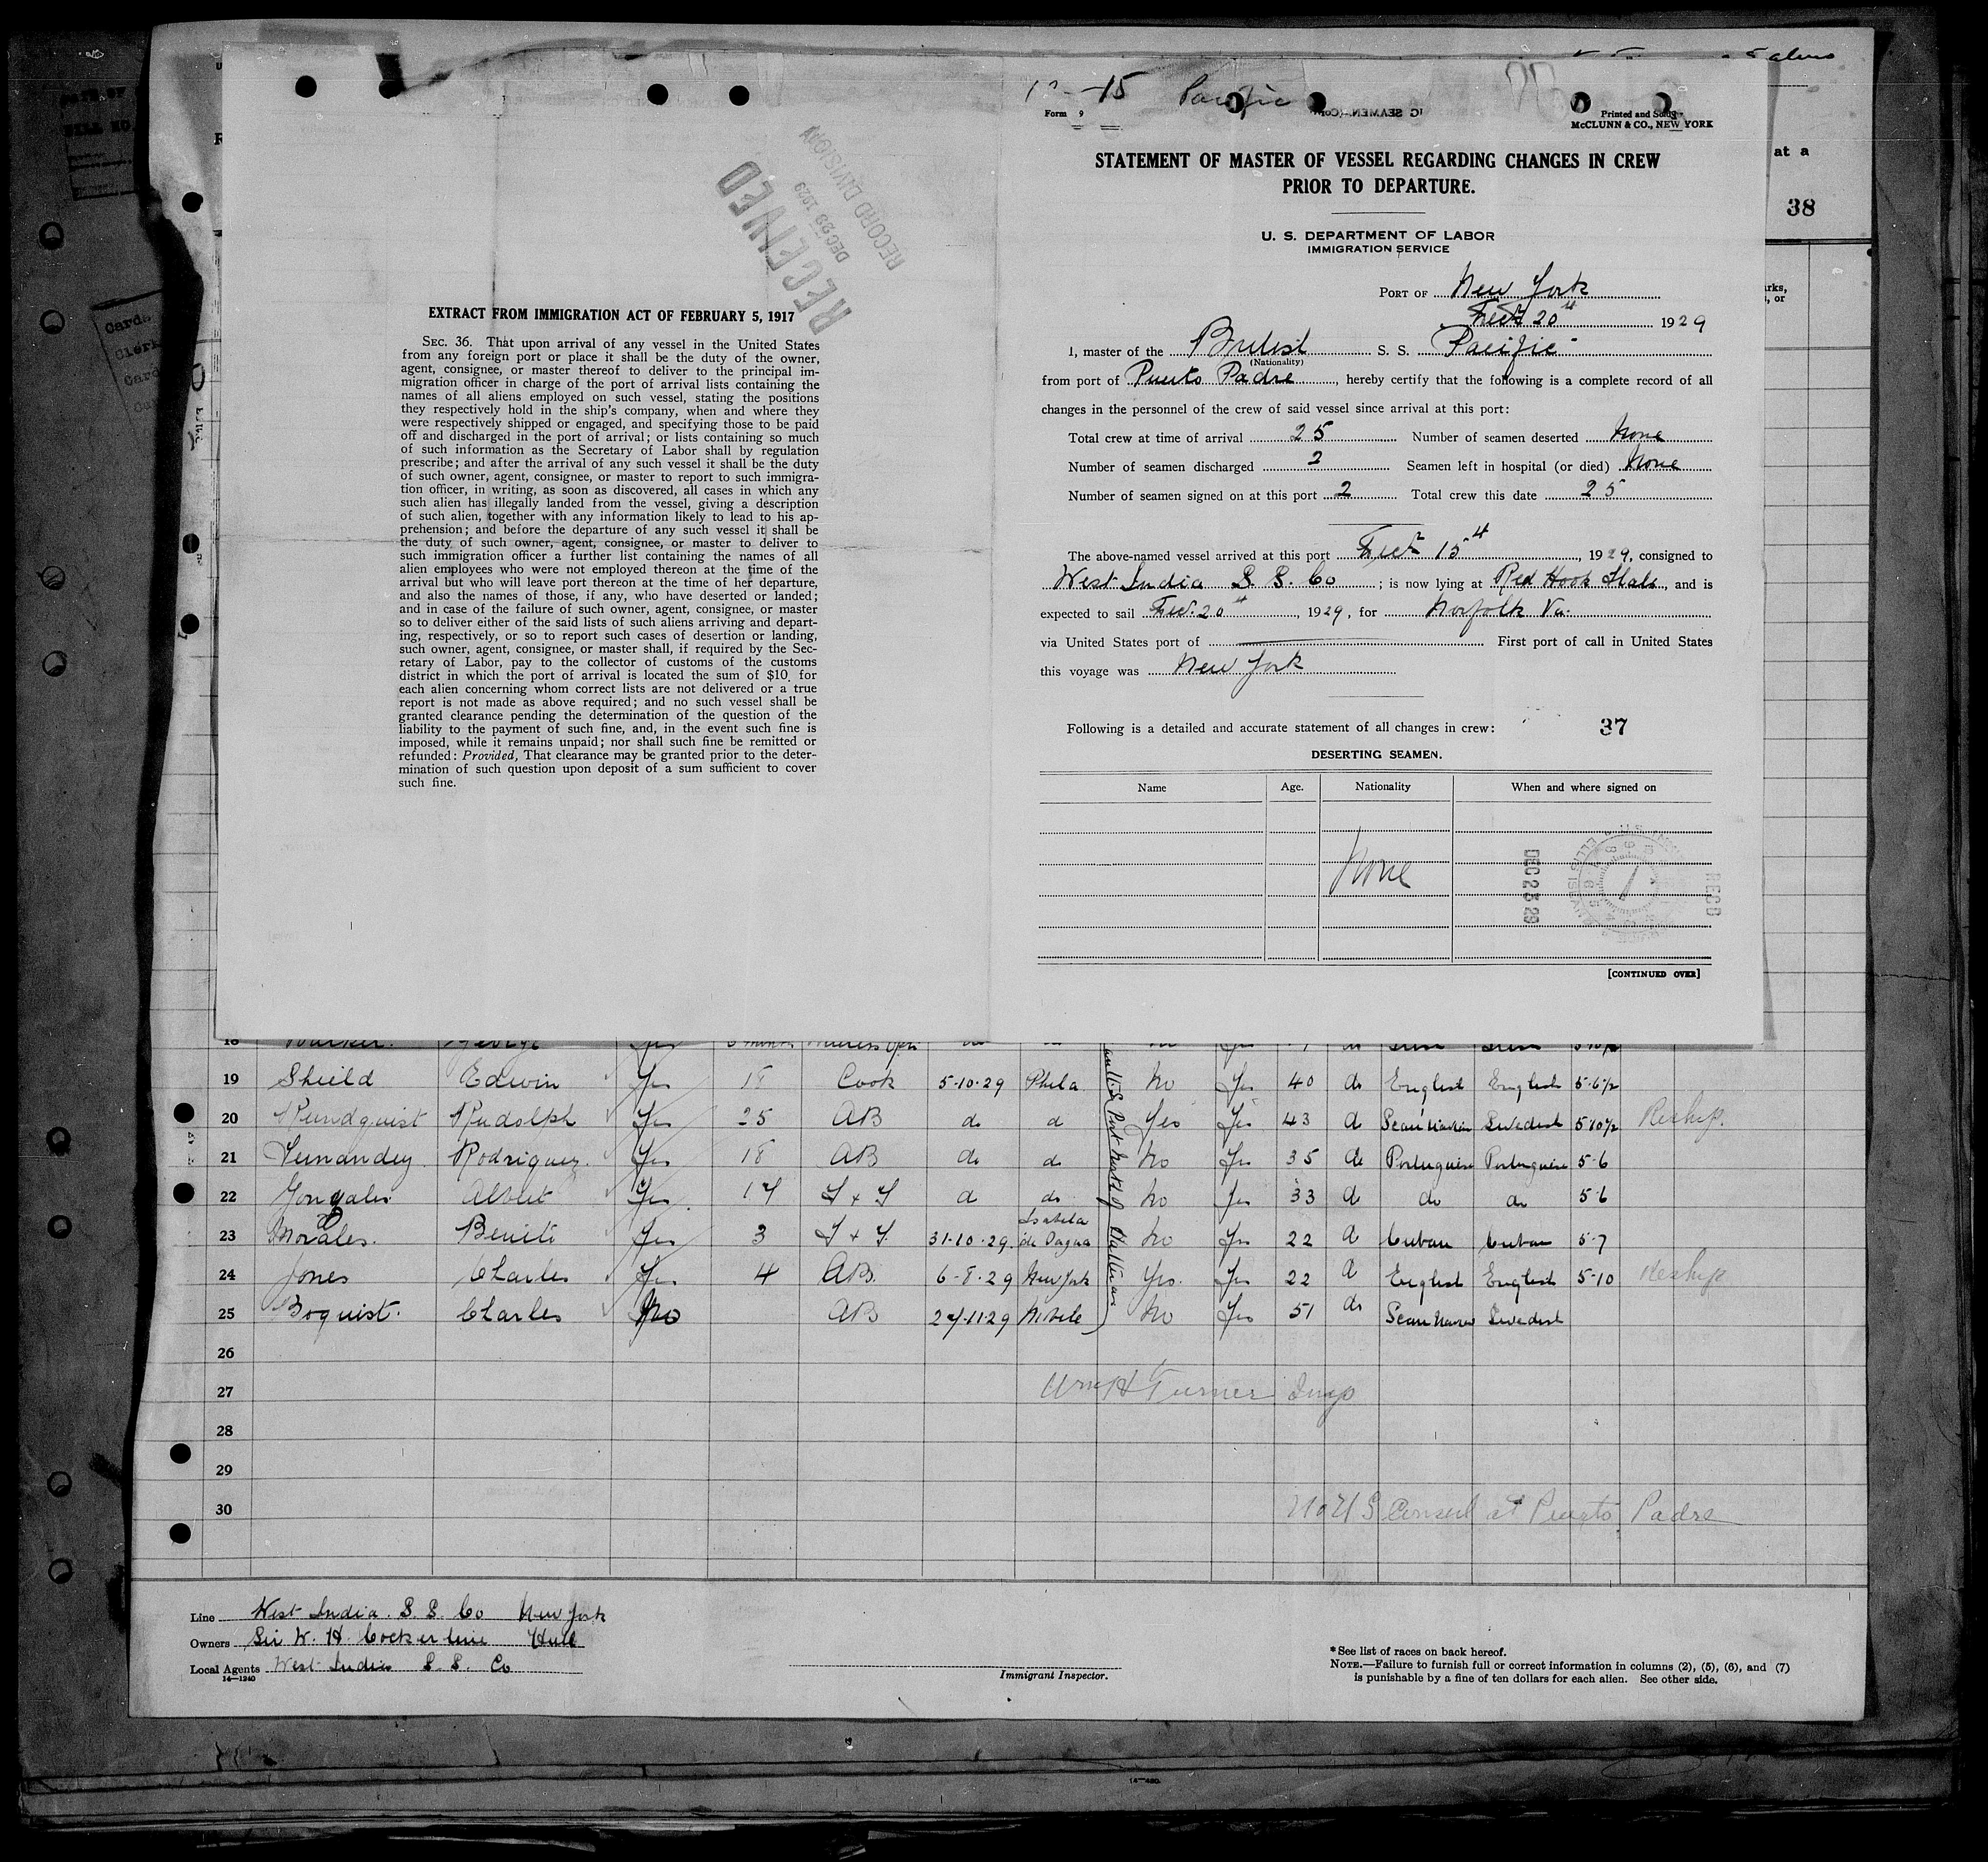 EXTRACT FROM IMMIGRATION ACT OF FEBRUARY 5, 1917
SEC. 36. That upon arrival of any vessel in the United States
from any foreign port or place it shall be the duty of the owner,
agent, consignee, or master thereof to deliver to the principal im-
migration officer in charge of the port of arrival lists containing the
names of all aliens employed on such vessel, stating the positions
they respectively hold in the ship's company, when and where they
were respectively shipped or engaged, and specifying those to be paid
off and discharged in the port of arrival; or lists containing so much
of such information as the Secretary of Labor shall by regulation
prescribe; and after the arrival of any such vessel it shall be the duty
of such owner, agent, consignee, or master to report to such immigra-
tion officer, in writing, as soon as discovered, all cases in which any
such alien has illegally landed from the vessel, giving a description
of such alien, together with any information likely to lead to his ap-
prehension; and before the departure of any such vessel it shall be
the duty of such owner, agent, consignee, or master to deliver to
such immigration officer a further list containing the names of all
alien employees who were not employed thereon at the time of the
arrival but who will leave port thereon at the time of her departure,
and also the names of those, if any, who have deserted or landed;
and in case of the failure of such owner, agent, consignee, or master
so to deliver either of the said lists of such aliens arriving and depart-
ing, respectively, or so to report such cases of desertion or landing,
such owner, agent, consignee, or master shall, if required by the Sec-
retary of Labor, pay to the collector of customs of the customs
district in which the port of arrival is located the sum of $10. for
each alien concerning whom correct lists are not delivered or a true
report is not made as above required; and no such vessel shall be
granted clearance pending the determination of the question of the
liability to the payment of such fine, and, in the event such fine is
imposed, while it remains unpaid; nor shall such fine be remitted or
refunded: Provided, That clearance may be granted prior to the deter-
mination of such question upon deposit of a sum sufficient to cover
such fine.
RECEIVED
DEC 28 1929
RECORD DIVISION
15 Pacific
Form 9
Printed and Sold by
McCLUNN & CO., NEW YORK
STATEMENT OF MASTER OF VESSEL REGARDING CHANGES IN CREW
PRIOR TO DEPARTURE.
U. S. DEPARTMENT OF LABOR
IMMIGRATION SERVICE
PORT OF New York
20th 1929
I, master of the British S. S. Pacific
(Nationality)
from port of Puerto Padre, hereby certify that the following is a complete record of all
changes in the personnel of the crew of said vessel since arrival at this port:
Total crew at time of arrival 25 Number of seamen deserted None
Number of seamen discharged 2 Seamen left in hospital (or died) None
Number of seamen signed on at this port 2 Total crew this date 25
The above-named vessel arrived at this port 15th, 1929, consigned to
West India S. S. Co; is now lying at Red Hook, and is
expected to sail 20th, 1929, for Norfolk Va.
via United States port of First port of call in United States
this voyage was New York
Following is a detailed and accurate statement of all changes in crew: 37
DESERTING SEAMEN.
Name Age. Nationality When and where signed on
None
DEC 23 29
RECD
[CONTINUED OVER]
at a
38
18 George
19 Shield Edwin Yes 18 Cook 5-10-29 Phila No Yes 40 do English English 5-6½
20 Rundquist Rudolph Yes 25 AB do do Yes Yes 43 do Scandinavian Swedish 5 10½ Reship.
21 Fernandez Rodriguez Yes 18 AB do do No Yes 35 do Portuguese Portuguese 5-6
22 Gonzales Albert Yes 17 F & T do do No Yes 33 do do do 5-6
23 Morales. Benito Yes 3 F & T 31-10-29 Isabela de Sagua No Yes 22 do Cuban Cuban 5-7
24 Jones Charles Yes 4 AB. 6-8-29 New York Yes. Yes 22 do English English 5-10 Reship
25 Boquist. Charles No AB 27-11-29 Mobile No Yes 51 do Scandinavian Swedish
26
27 Wm H Turner Insp
28
29
30 No U S Consul at Puerto Padre
Line West India. S. S. Co New York
Owners Sir W. H. Cockerline Hull
Local Agents West India S. S. Co
14—1240
Immigrant Inspector.
*See list of races on back hereof.
NOTE.—Failure to furnish full or correct information in columns (2), (5), (6), and (7)
is punishable by a fine of ten dollars for each alien. See other side.
14—480